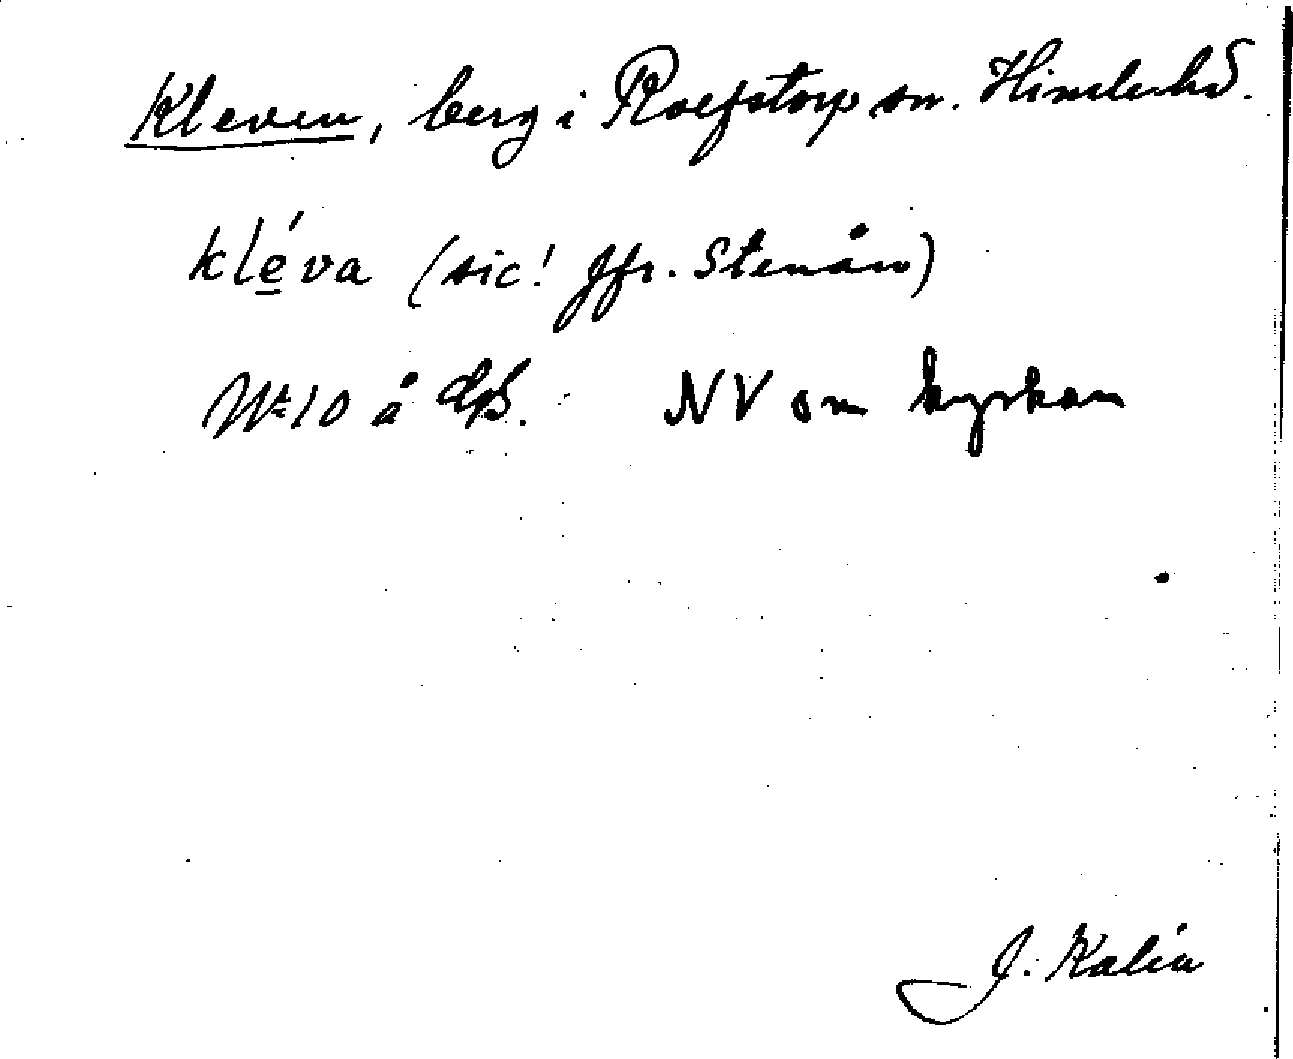 Kleven, berg i Rolfstorp sn. Himle hd.
kléva (sic! Jfr. Stenåsa)
Nr 10 å EK. NV om kyrkan
J. Kalén